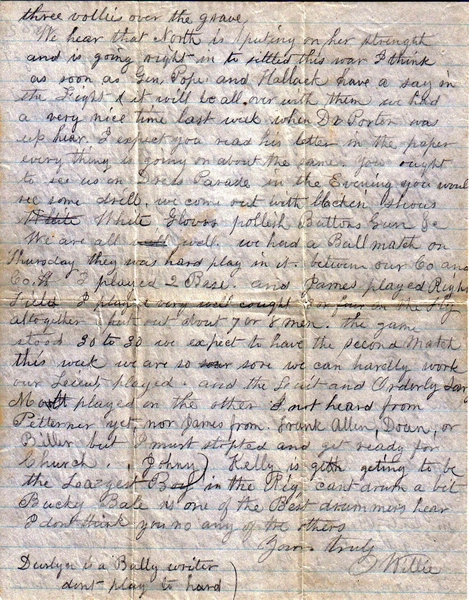 three vollies over the grave.
We hear that North is putting on her strenght
and is going right in to settled this war I think
as soon as Gen. Pope and Hallack have a say in
the Fight & it will be all over with them we had
a very nice time last week when Dr Porter was
up hear. I expect you read his letter in the paper
every thing is going on about the same. you ought
to see us on Dress Parade in the Evening you would
see some drill. we come out with blacken shous
White Gloves pollish Buttons Gun &c
We are all well. we had a Ball match on
Thursday they was hard play in it. betwen our Co and
Co. H I played 2 Base. and James played Right
Field I played very well cought 3 or four on the Fly
altogether put out about 7 or 8 men. the game
stood 30 to 30 we expect to have the second Match
this week we are so sore we can hardly work
our Leieut played. and the Leuit and Orderly Sarg
played on the other I not heard from
yet, nor James from. Frank Allen, Doan, or
Biller but I must stopted and get ready for
Church. . Johny) Kelly is geting to be
the Loazest Boy in the Reg, cant drum a bit
Bucky Bale is one of the Best drummers hear
I dont think you no any of the others
Yours truly
Willie
is a Bully writer
dont play to hard)